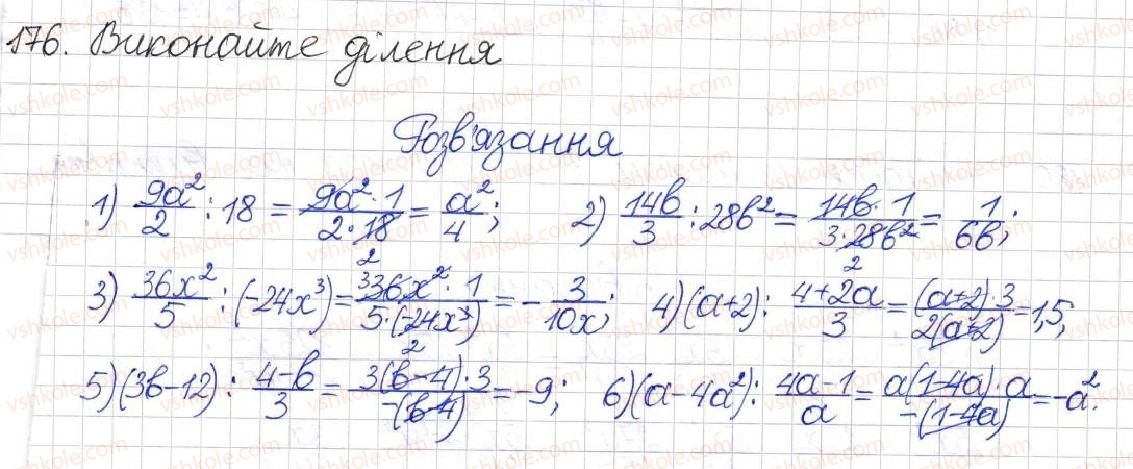 176. Виконайте ділення
Розв'язання
1) 9a²/2 : 18 = 9a²·1/2·18 = a²/4; 2) 14b/3 : 28b² = 14b·1/3·28b² = 1/6b;
2 2
3) 36x²/5 : (-24x³) = ³36x²·1/5·(-24x³) = - 3/10x; 4) (a+2) : 4+2a/3 = (a+2)·3/2(a+2) = 1,5;
2
5) (3b-12) : 4-b/3 = 3(b-4)·3/-(b-4) = -9; 6) (a-4a²) : 4a-1/a = a(1-4a)·a/-(1-4a) = -a².